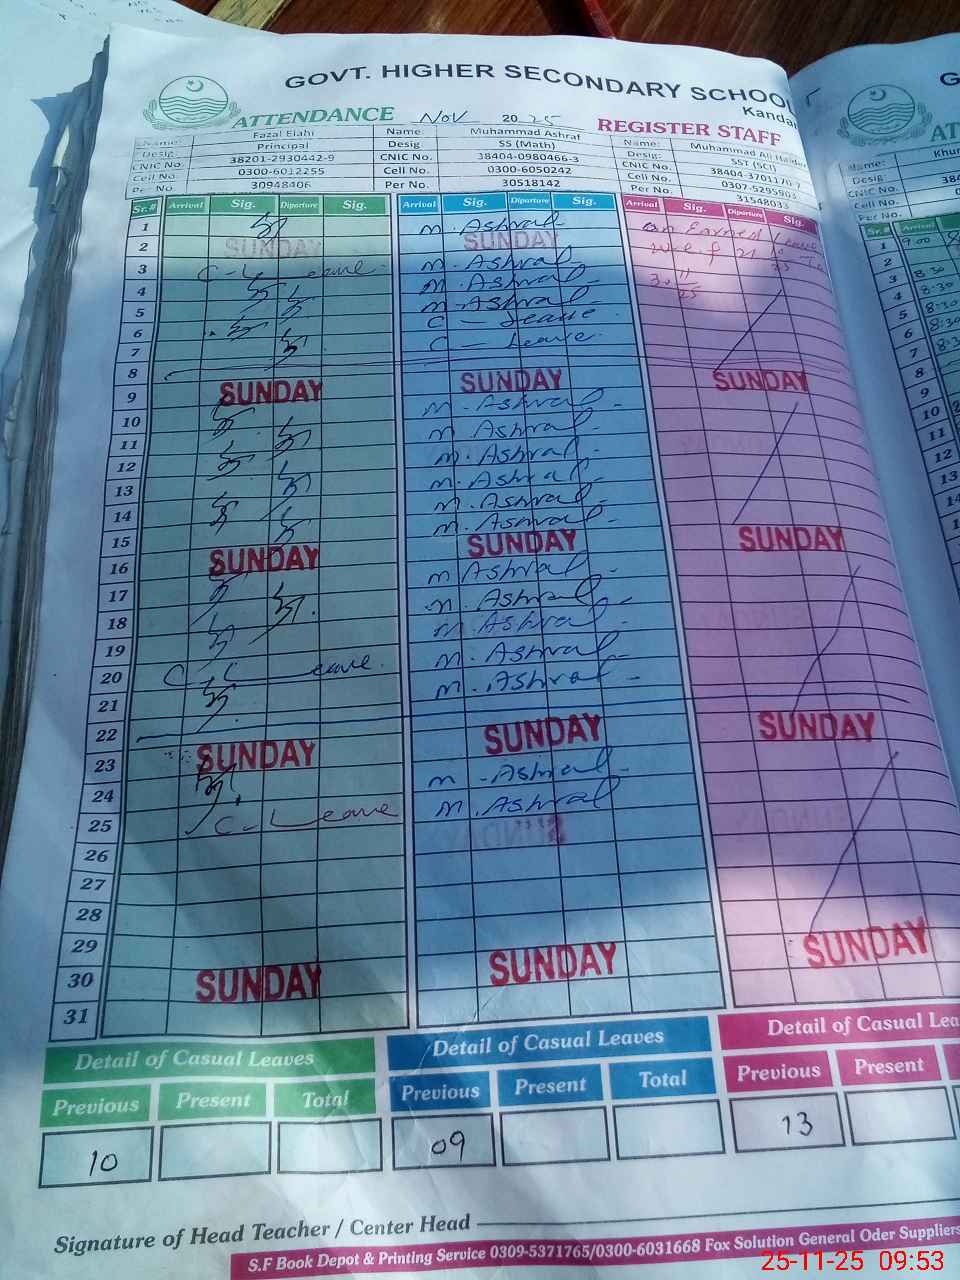 GOVT. HIGHER SECONDARY SCHOOL
Kandan
ATTENDANCE Nov 2025 REGISTER STAFF
Name: Fazal Elahi Name: Muhammad Ashraf Name: Muhammad Ali Haider
Desig: Principal Desig SS (Math) Desig: SST (SCI)
CNIC No. 38201-2930442-9 CNIC No. 38404-0980466-3 CNIC No.
Cell No. 0300-6012255 Cell No. 0300-6050242 Cell No. 0307-5295903
Per No. 30948406 Per No. 30518142 Per No. 31548033
Sr.# Arrival Sig. Diparture Sig. Arrival Sig. Diparture Sig. Arrival Sig. Diparture Sig.
1 M. Ashraf On Earned Leave
2 SUNDAY SUNDAY
3 C-Leave M. Ashraf
4 M. Ashraf
5 M. Ashraf
6 C-Leave
7 C-Leave
8
9 SUNDAY SUNDAY SUNDAY
10 M. Ashraf
11 M. Ashraf
12 M. Ashraf
13 M. Ashraf
14 M. Ashraf
15 M. Ashraf
16 SUNDAY SUNDAY SUNDAY
17 M. Ashraf
18 M. Ashraf
19 M. Ashraf
20 C-Leave M. Ashraf
21 M. Ashraf
22
23 SUNDAY SUNDAY SUNDAY
24 M. Ashraf
25 C-Leave M. Ashraf
26
27
28
29
30 SUNDAY SUNDAY SUNDAY
31
Detail of Casual Leaves Detail of Casual Leaves Detail of Casual Lea
Previous Present Total Previous Present Total Previous Present
10 09 13
Signature of Head Teacher / Center Head
S.F Book Depot & Printing Service 0309-5371765/0300-6031668 Fox Solution General Oder Suppliers
Name: Khur
Desig
CNIC No.
Cell No.
Per No.
Sr.# Arrival
1 9:00
2
3 8:30
4 8:30
5 8:30
6 8:30
7
8
9
10
11
12
13
14
25-11-25 09:53